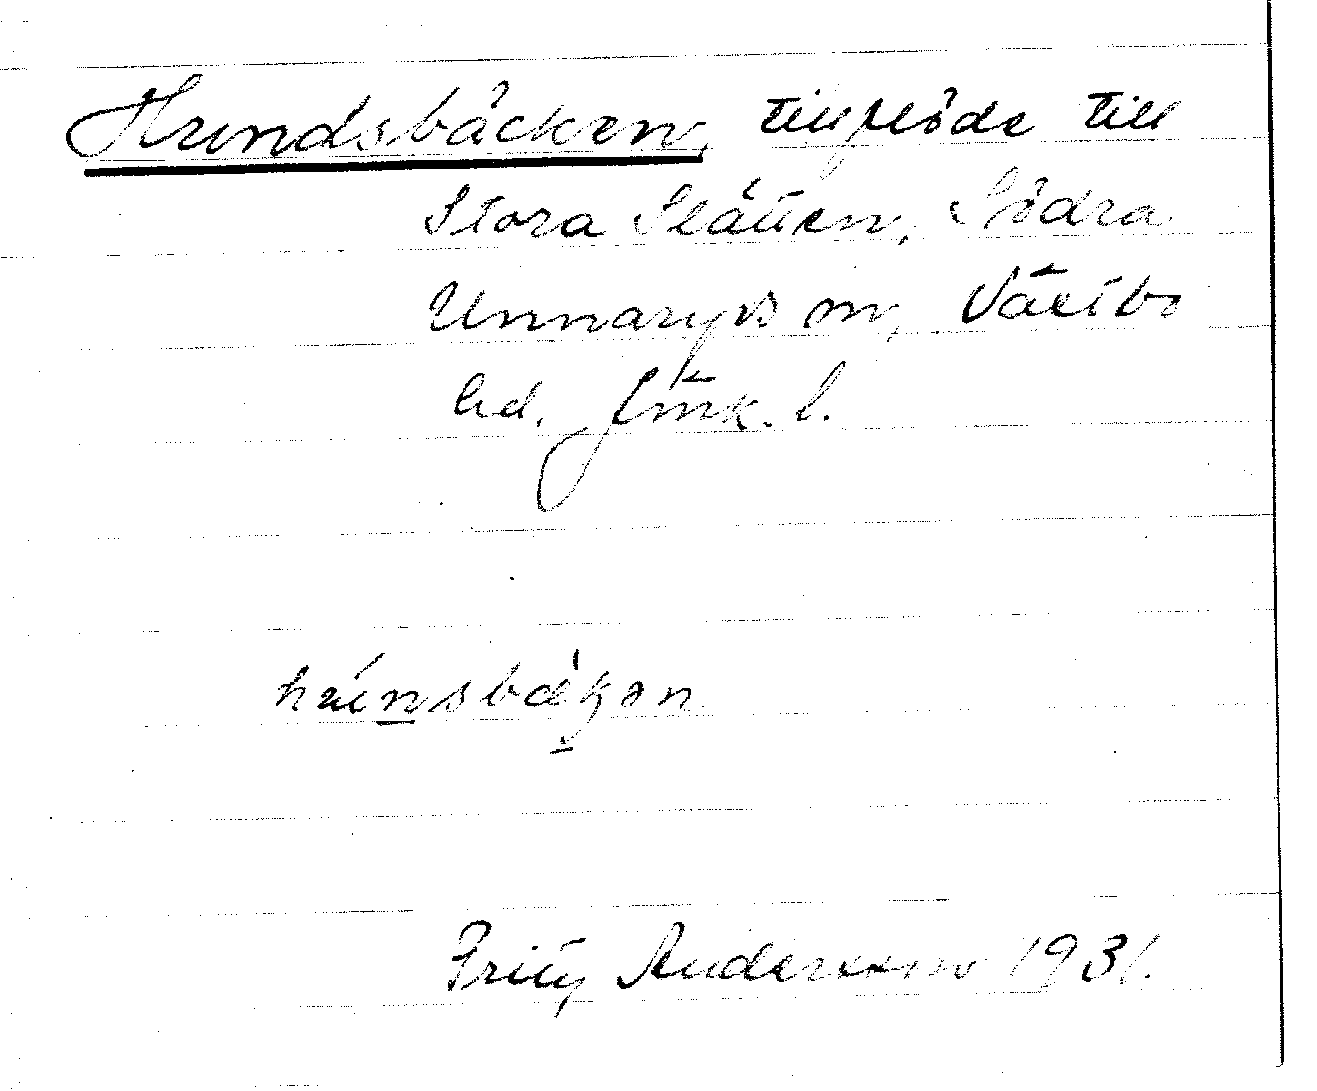 Hundsbäcken, tillflöde till
Stora Slätten, Södra
Unnaryds sn, Västbo
hd. Jönk. l.
Fritz Andersson 1931.